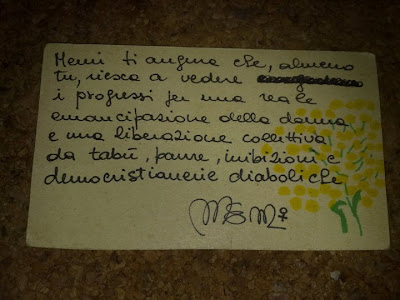 Memi ti augura che, almeno
tu, riesca a vedere
i progressi per una reale
emancipazione della donna
e una liberazione collettiva
da tabù, paure, inibizioni e
democristianerie diaboliche